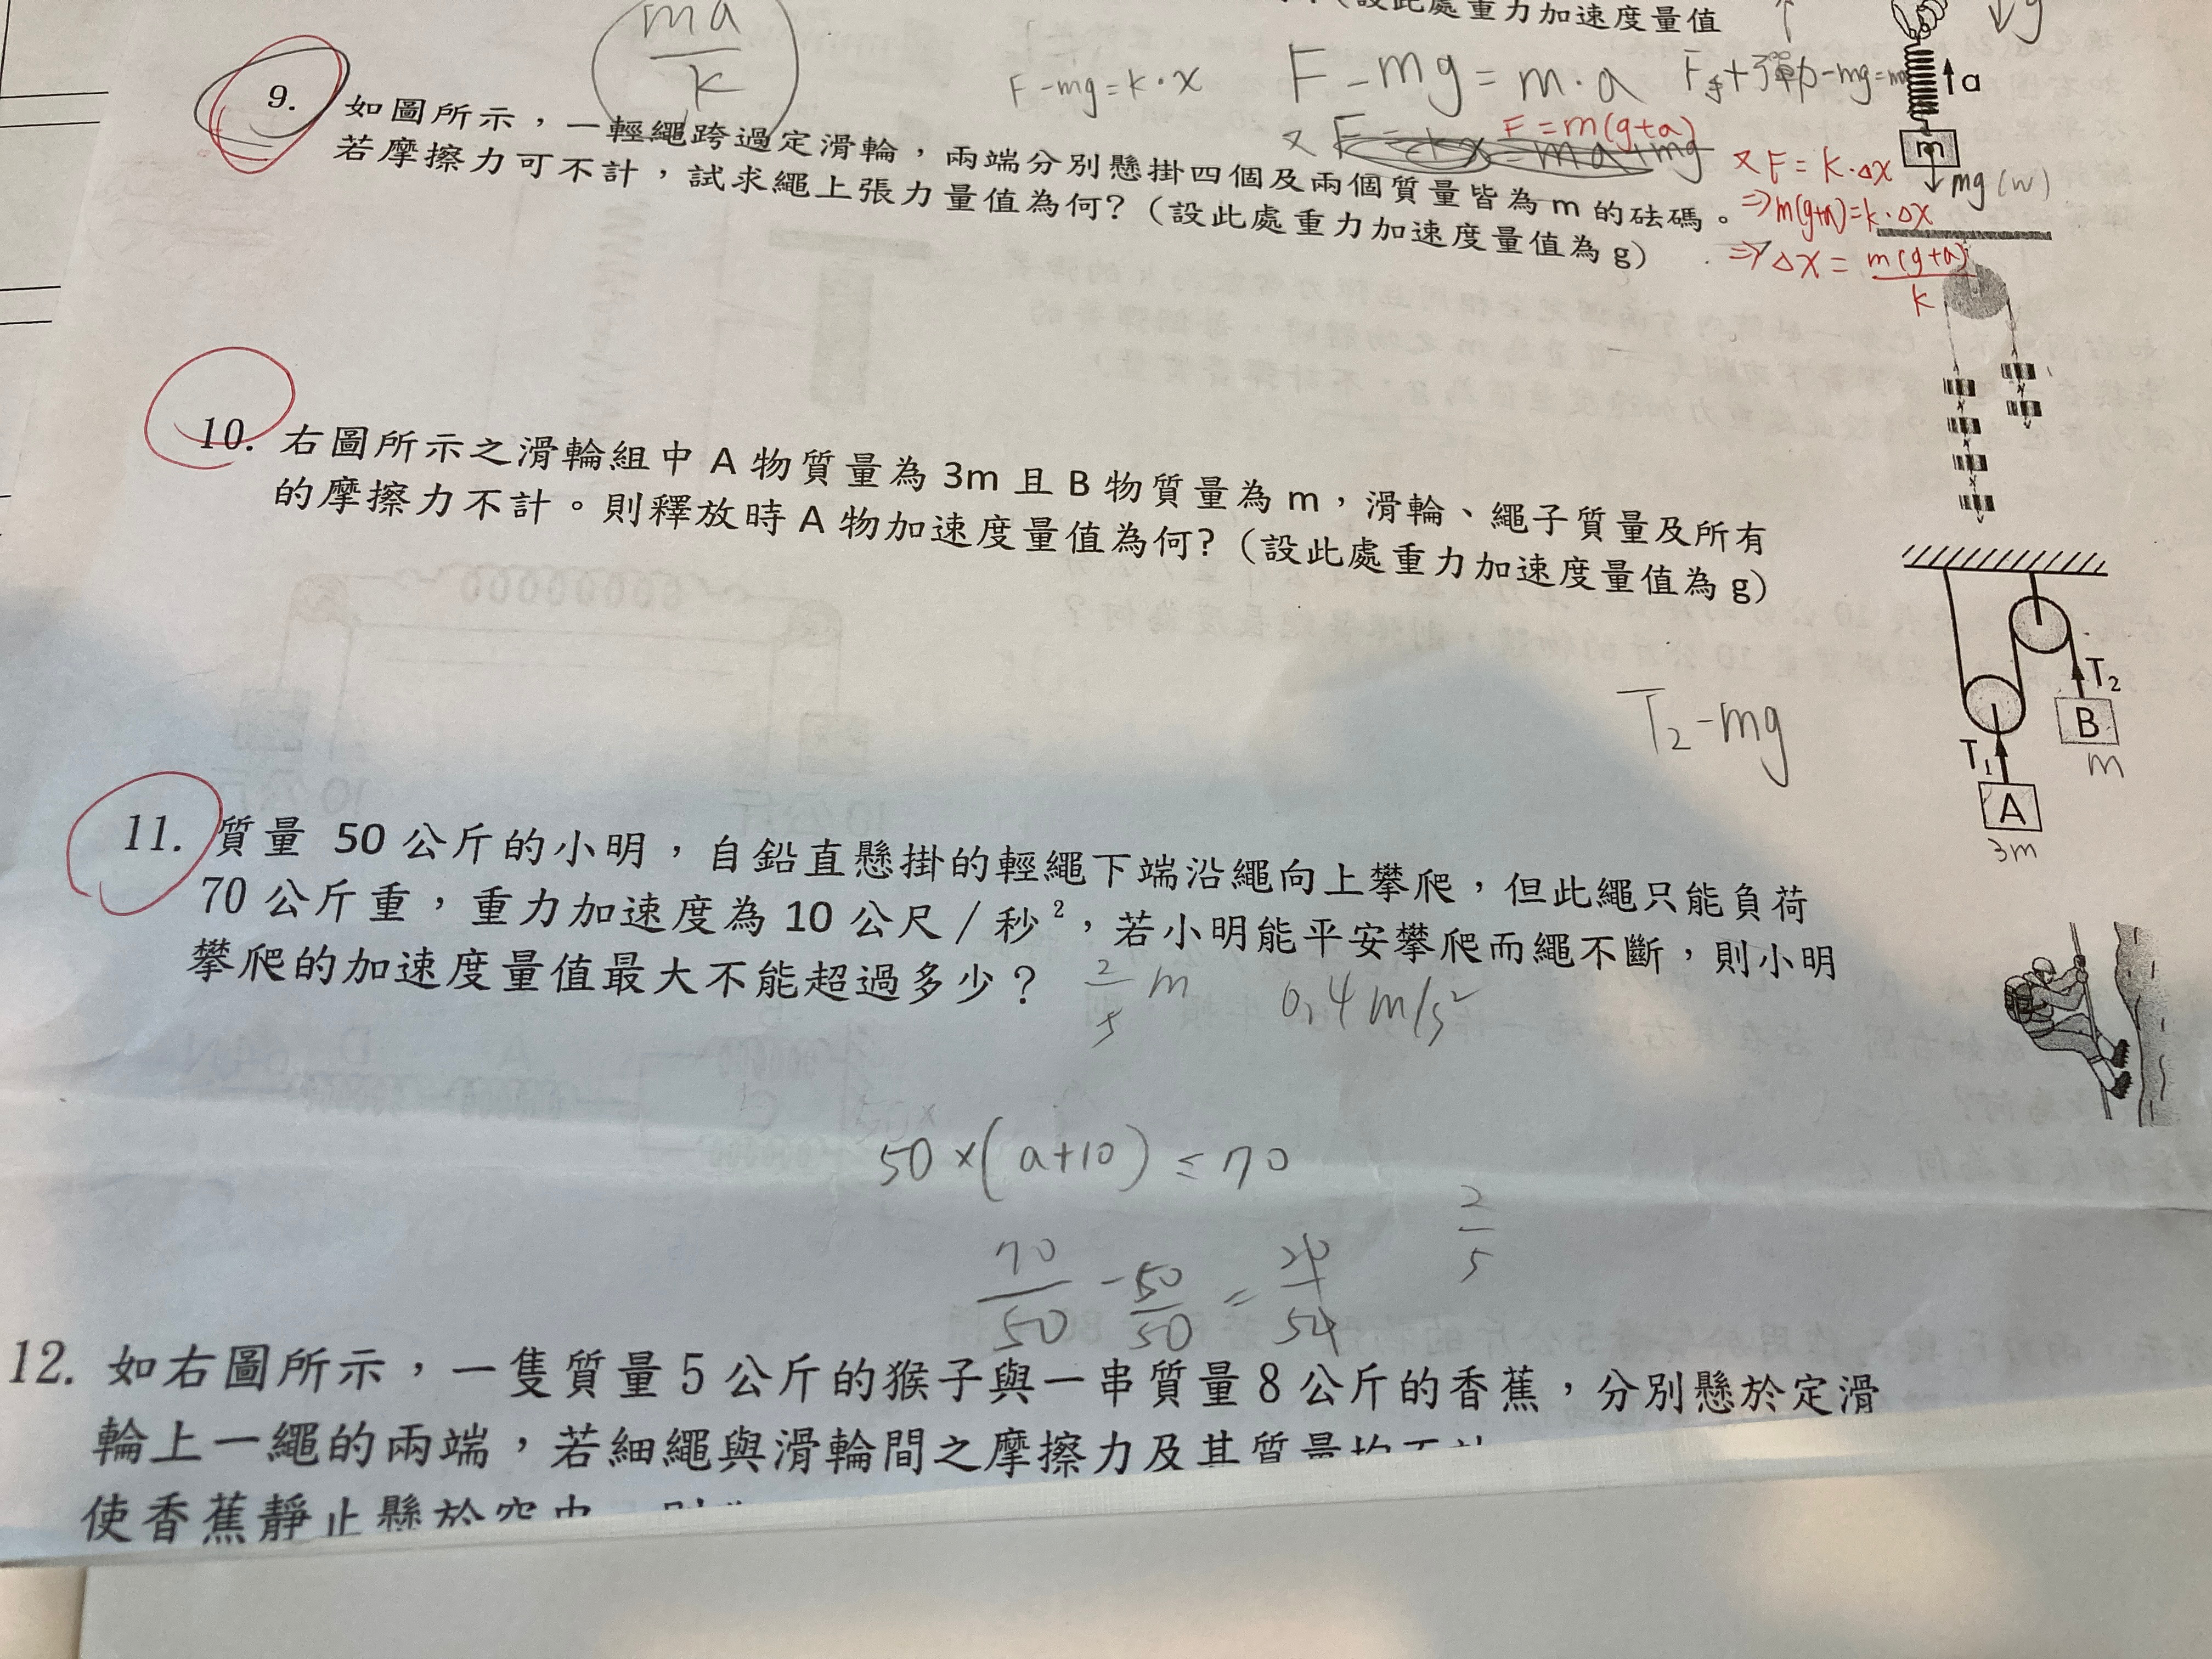 (設此處重力加速度量值
ma
k
F-mg=k·x
F-mg=m·a
F手+彈力-mg=ma
a
g
9. 如圖所示，一輕繩跨過定滑輪，兩端分別懸掛四個及兩個質量皆為m的砝碼。
若摩擦力可不計，試求繩上張力量值為何?(設此處重力加速度量值為g)
F=m(g+a)
又F=kx=ma+mg
m
mg(w)
又F=k·Δx
⇒m(g+a)=k·Δx
⇒Δx=m(g+a)
k
10. 右圖所示之滑輪組中A物質量為3m且B物質量為m，滑輪、繩子質量及所有
的摩擦力不計。則釋放時A物加速度量值為何?(設此處重力加速度量值為g)
T2-mg
T2
B
m
T1
A
3m
11. 質量 50公斤的小明，自鉛直懸掛的輕繩下端沿繩向上攀爬，但此繩只能負荷
70公斤重，重力加速度為10公尺/秒²，若小明能平安攀爬而繩不斷，則小明
攀爬的加速度量值最大不能超過多少?
2
5
m
0.4m/s²
50×(a+10)≤70
70
50
-50
50
=
2
5
12. 如右圖所示，一隻質量5公斤的猴子與一串質量8公斤的香蕉，分別懸於定滑
輪上一繩的兩端，若細繩與滑輪間之摩擦力及其質量均不計
使香蕉靜止懸於空中